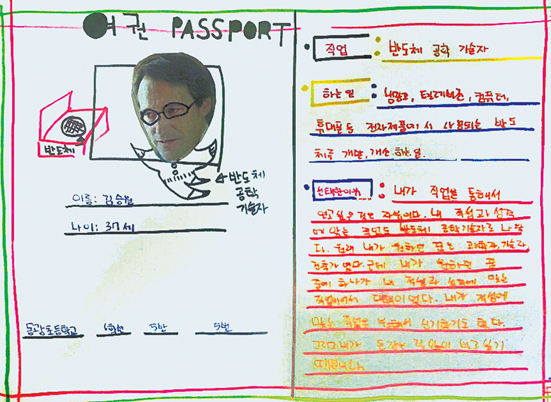 여권 PASSPORT
반도체
반도체
공학
기술자
이름: 김승
나이: 37세
동광초등학교 6학년 5반 5번
직업 : 반도체 공학 기술자
하는 일 : 냉장고, 텔레비전, 컴퓨터,
휴대폰 등 전자제품에서 사용되는 반도
체를 개발, 개선 하는 일.
선택한이유 : 내가 직업을 통해서
얻고 싶은 것은 내 적성과
에 맞는 직업도 반도체 공학기술자로 나왔
다. 원래 내가 원하던 꿈은 과학자, 기술자
건축가 였다. 근데 내가 원하던 꿈
중에 하나가 내 적성과 맞는
직업이어서 다행이었다. 내가 적성에
맞는 직업을 신기하기도 하다.
그리고 내가
때문이다.